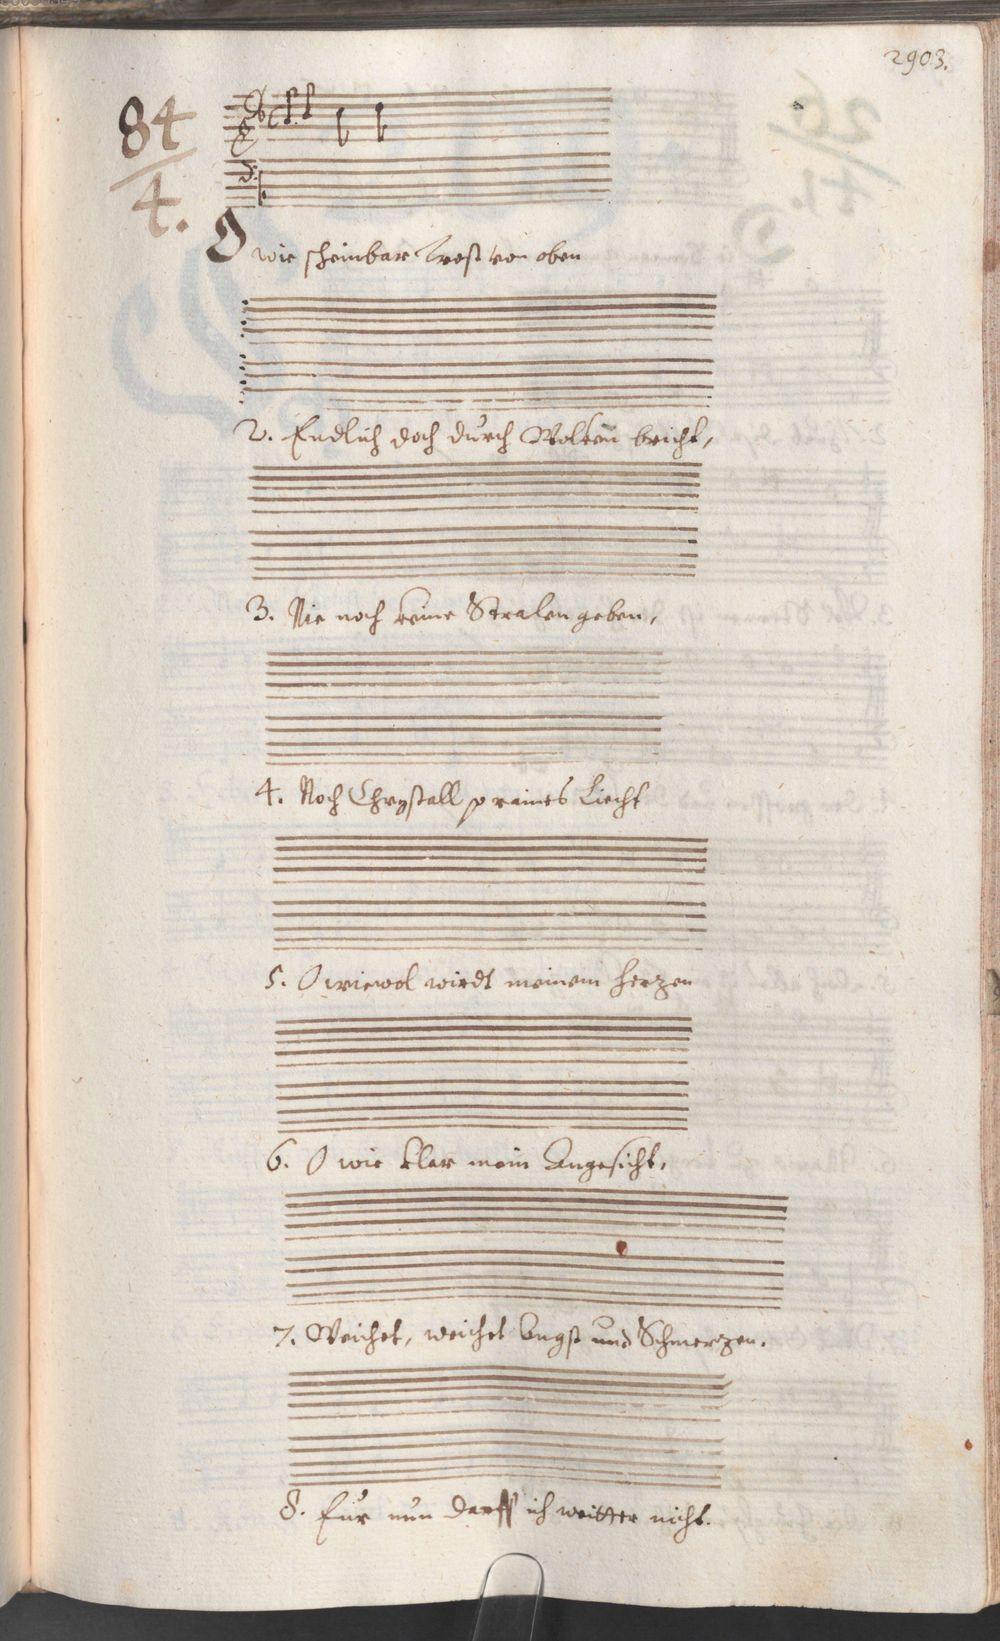 2903.
84
4.
O wie scheinbar Trost von oben
2. Endlich doch durch Wolken bricht,
3. Nie noch keine Stralen geben,
4. Noch Chrystall so raines Liecht
5. O wiewol wirdt meinem Herzen
6. O wie klar mein Angesicht,
7. Weichet, weichet Angst und Schmerzen.
8. Für nun darff ich weitter nicht.